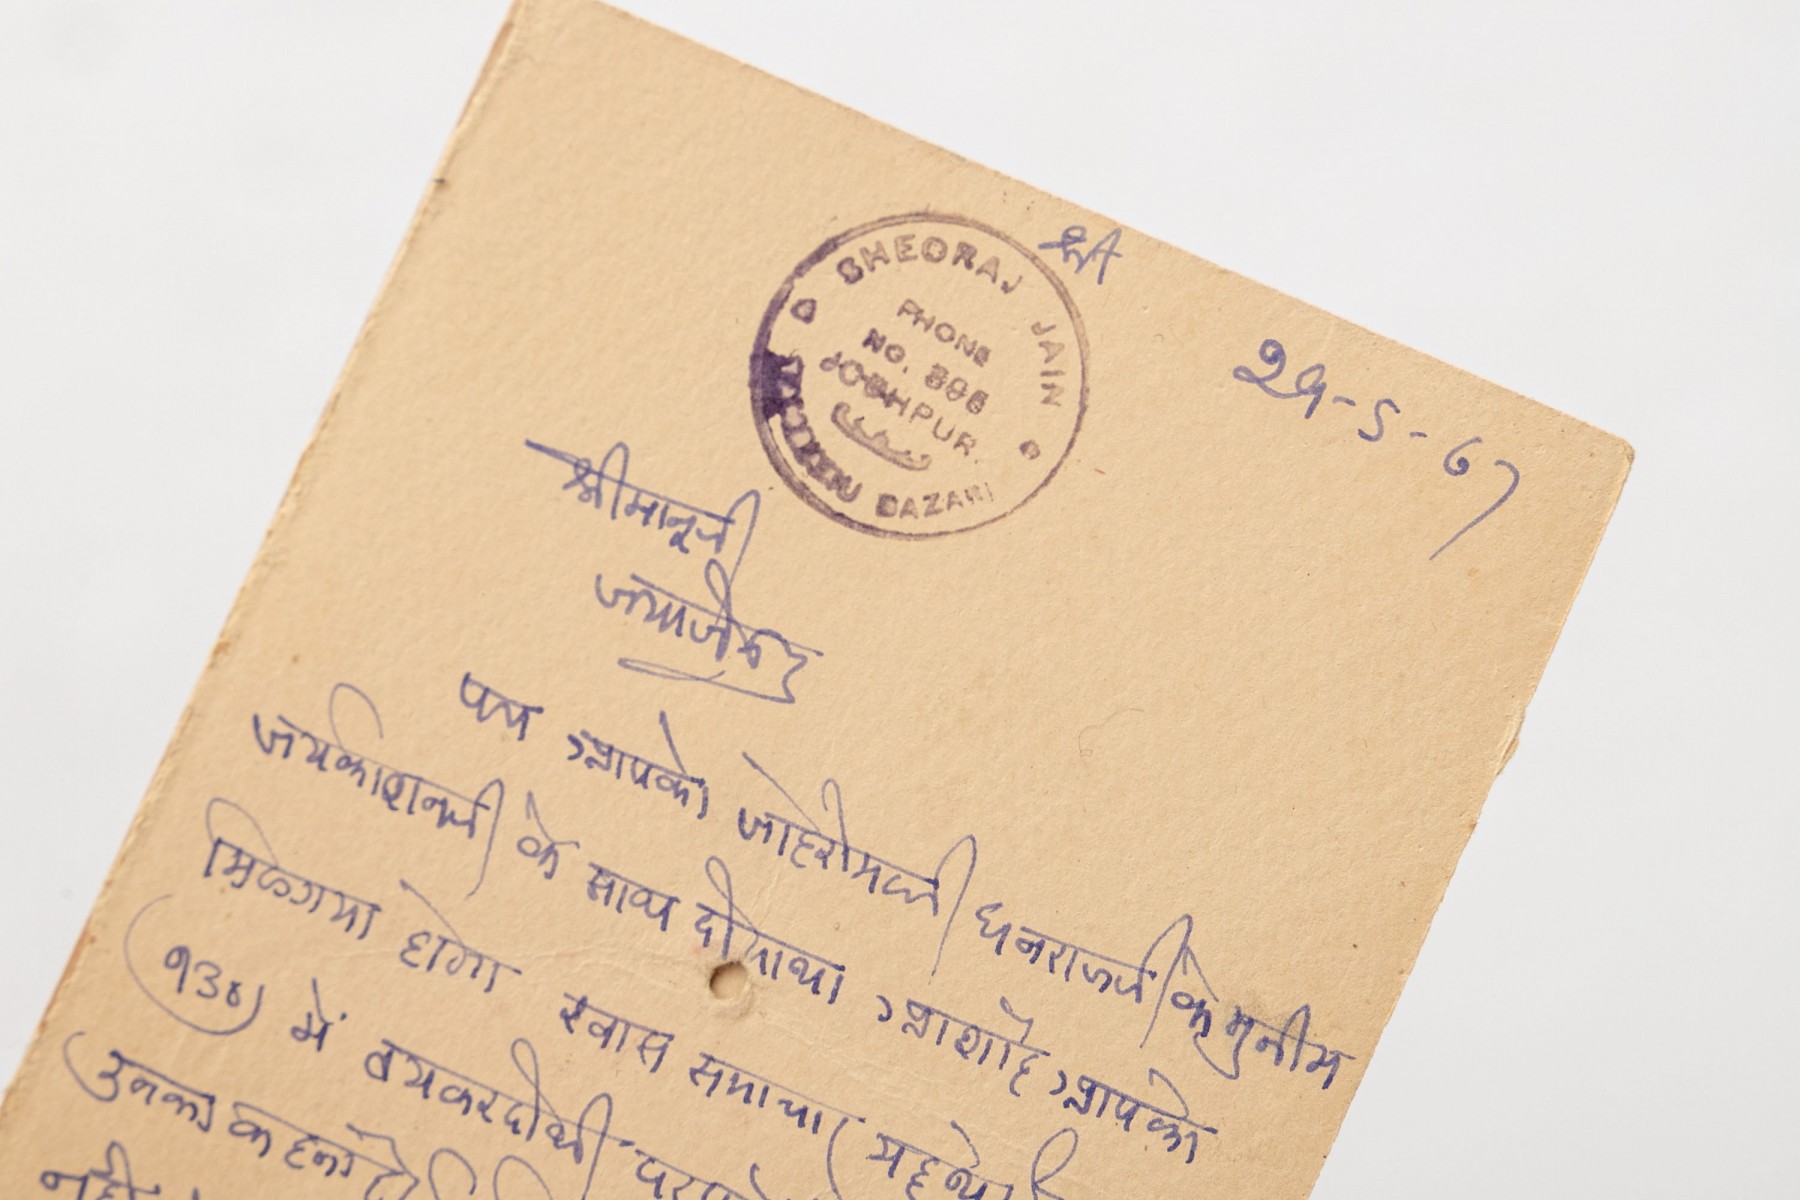 श्री
SHEORAJ JAIN
PHONE
NO. 396
JODHPUR.
BAZAR
29-5-67
श्रीमानजी
पत्र आपको जोहरीमलजी धनराजजी के मुनीम
के साथ दीया था आशा है आपको
मिल गया होगा खास समाचार यह है
(१३०) में बय कर दी थी
उनका कहना है
नही